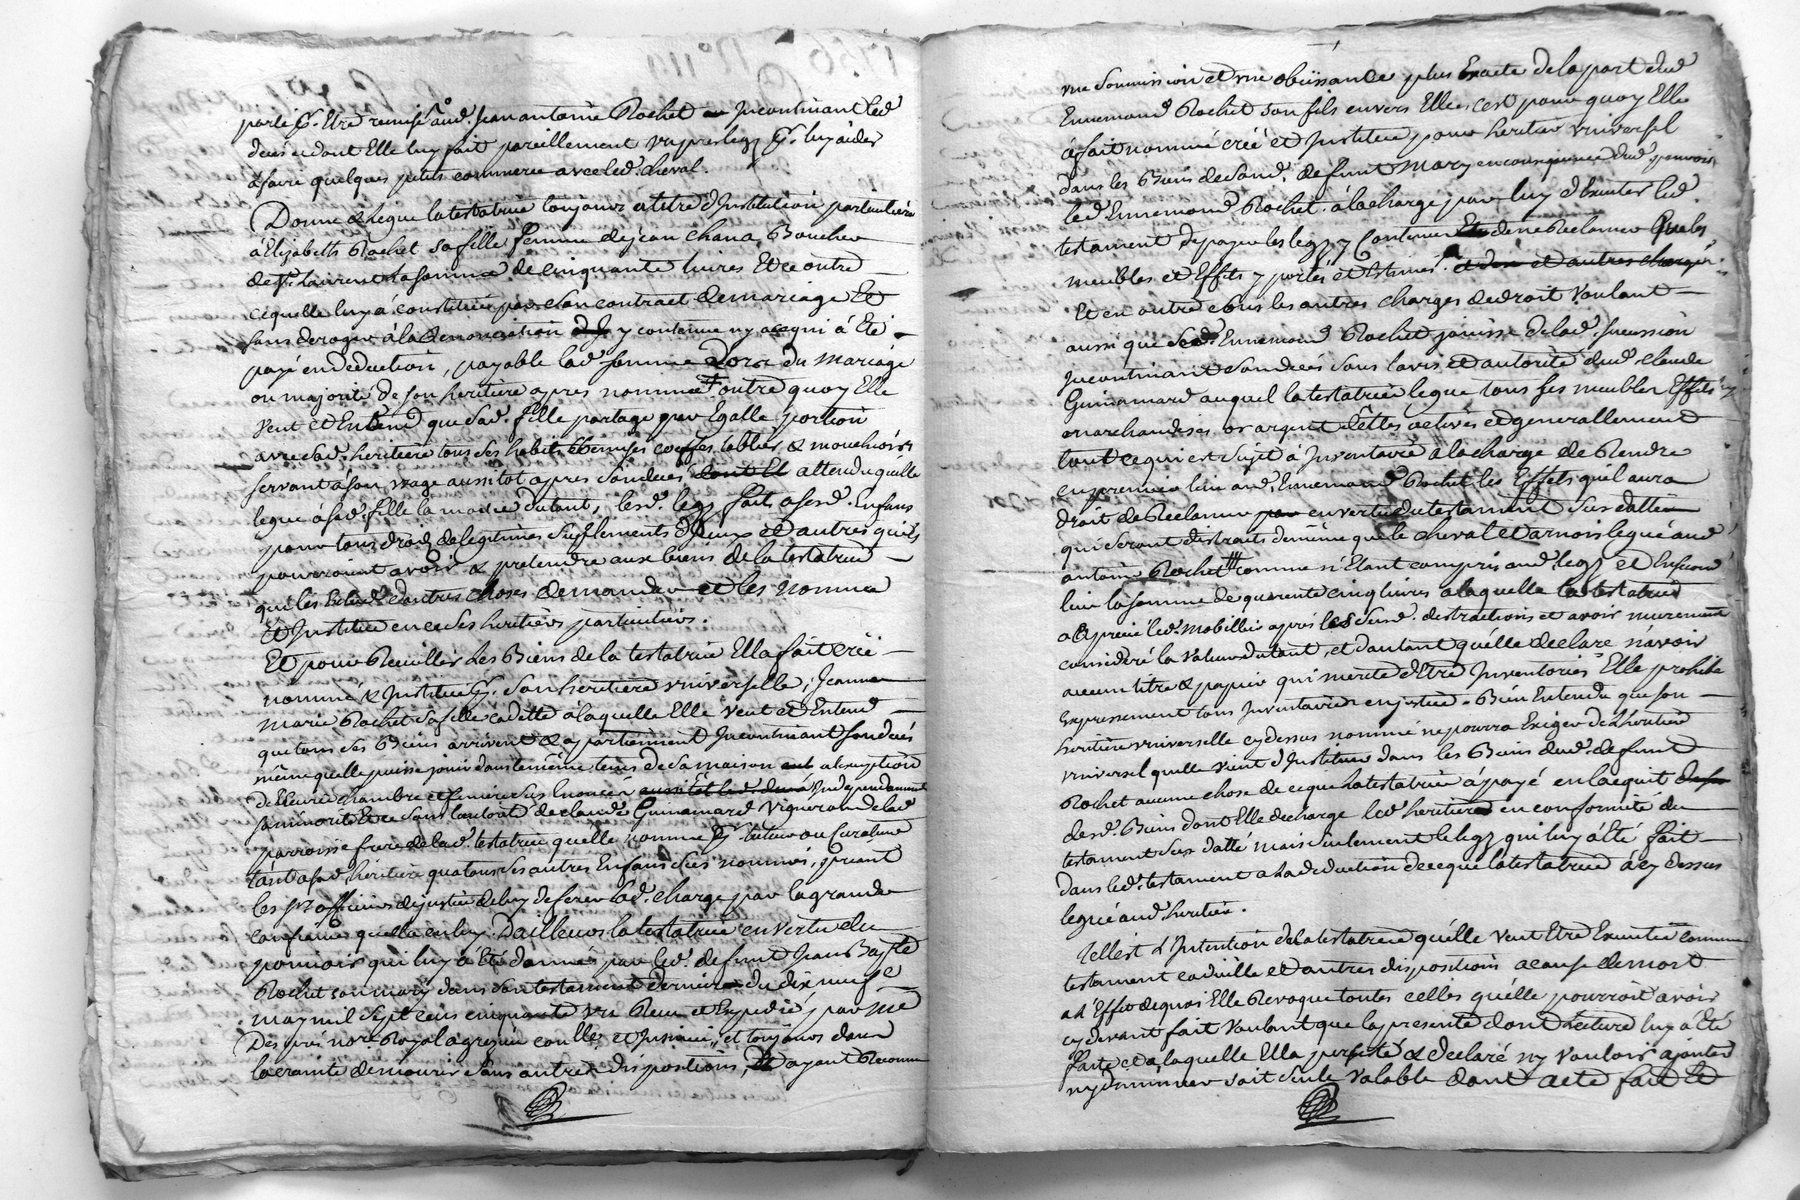 porte pr. Etre remise aud. Jean antoine Rochet incontinant led
deces dont Elle luy fait pareillement un prelegz pr. luy aider
a faire quelques petit commerce avec led. cheval.
Donne & legue la testatrice toujours a titre d'Institution particuliere
à Elizabeth Rochet sa fille femme de jean chana Boucher
de St. Laurent la somme de cinquante livres Et ce outre
ce quelle luy á constitué par son contract de mariage Et
sans deroger à la Renonciation y contenue ny a ce qui à Eté
payé en deduction, payable lad. somme Lors du mariage
ou majorité de son heritiere apres nommée outre quoy Elle
veut et Entend que sad. fille partage par Egalle portion
avec lad. heritiere tous ses habits chemises coeffes, tabliers & mouchoirs
servant à son usage aussitot apres son deces attendu qu'elle
legue à sad. fille la moitié du tout, lesd. legz faits a sesd. Enfans
pour tous droits de legitimes suplements d'yceux et autres qu'ils
pourroient avoir & pretendre aux biens de la testatrice
qui les d'autres choses demander et les nomme
Et Institue en ce ses heritiers particuliers.
Et pour Recuillir Les Biens de la testatrice Ella fait créé
nommé & Institué pr. son heritiere universelle, Jeanne
Marie Rochet sa fille cadette à laquelle Elle veut et Entend
que tous ses Biens arrivent & apartiennent Incontinant son deces
même quelle puisse jouir dans le même tems de sa maison a l'exeption
de lad. chambre et feniere sus Enoncées Independament
sa minorité Et ce sous l'autorité de claude Guinamard Vigneron de lad.
parroisse frere de lad. testatrice quelle nomme pr. tuteur ou Curateur
tant a sad. heritiere qua tous ses autres Enfans sus nommés, priant
les srs officiers de justice de luy deferer lad. charge par la grande
confiance quella en luy. D'ailleurs la testatrice en vertu du
pouvoir qui luy à Eté donné par led. defunt Jean Bapte
Rochet son mary dans son testament dernier du dix neuf
may mil sept cens cinquante un Recu et Expedié, par me
Des pres nore. Royal a gresieu conllé et Insinué, et toujours dans
la crainte de mourir sans autres dispositions, ayant Reconnu
une soumission et une obeissance plus Exacte de la part dud
Ennemond Rochet son fils envers Elle c'est pourquoy Elle
à fait nommé créé et Institué pour heritier universel
dans les Biens de sond. defunt Mary en consequence dud. pouvoir
led. Ennemond Rochet. à la charge par luy d'Executer led.
testament de payer les legz y contenus Et de ne Reclamer Que les
meubles et Effets y portés et Estimés. et autres charges
Et en outre sous les autres charges de droit voulant
aussi que led. Ennemond Rochet jouisse de lad. sucession
Incontinant son deces sous l'avis et autorité dud. claude
Guinamard auquel la testatrice legue tous ses meubles Effets
marchandises or argent dettes actives et generallement
tout ce qui est sujet à Inventaire à la charge de Rendre
en premier lieu aud. Ennemond Rochet les Effets quil aura
droit de Reclamer en vertu du testament sus datté
qui seront distraits de même que le cheval et arnois legué aud
antoine Rochet comme n'Etant compris aud. legz et En second
lieu la somme de quarente cinq livres a laquelle la testatrice
a aprecié led. Mobillier après lesd. susd. distractions et avoir murement
consideré la valeur du tout, et d'autant qu'elle declare n'avoir
aucun titre & papier qui merite d'Etre Inventories Elle prohibe
Expressement tous Inventaires en justice. Bien Entendu que son
heritiere universelle cy dessus nommée ne pourra Exiger de L'heritier
universel quelle vient d'Instituer dans les Biens dud. defunt
Rochet aucune chose de ce que la testatrice à payé en l'acquit
desd. Biens dont Elle decharge led. heritier en conformité du
testament sus datté mais seulement le legz qui luy à Eté fait
dans led. testament a la deduction de ce que la testatrice à cy dessus
legué aud. heritier.
Telle est L'Intention de la testatrice qu'elle veut Etre Executée comme
testament codicille et autres dispositions a cause de mort
a L'Effet de quoi Elle Revoque toutes celles qu'elle pourroit avoir
cy devant fait voulant que la presente dont Lecture luy à Eté
faite et a laquelle Ella persisté & declaré ny vouloir ajouter
ny diminuer soit seule valable dont acte fait Et